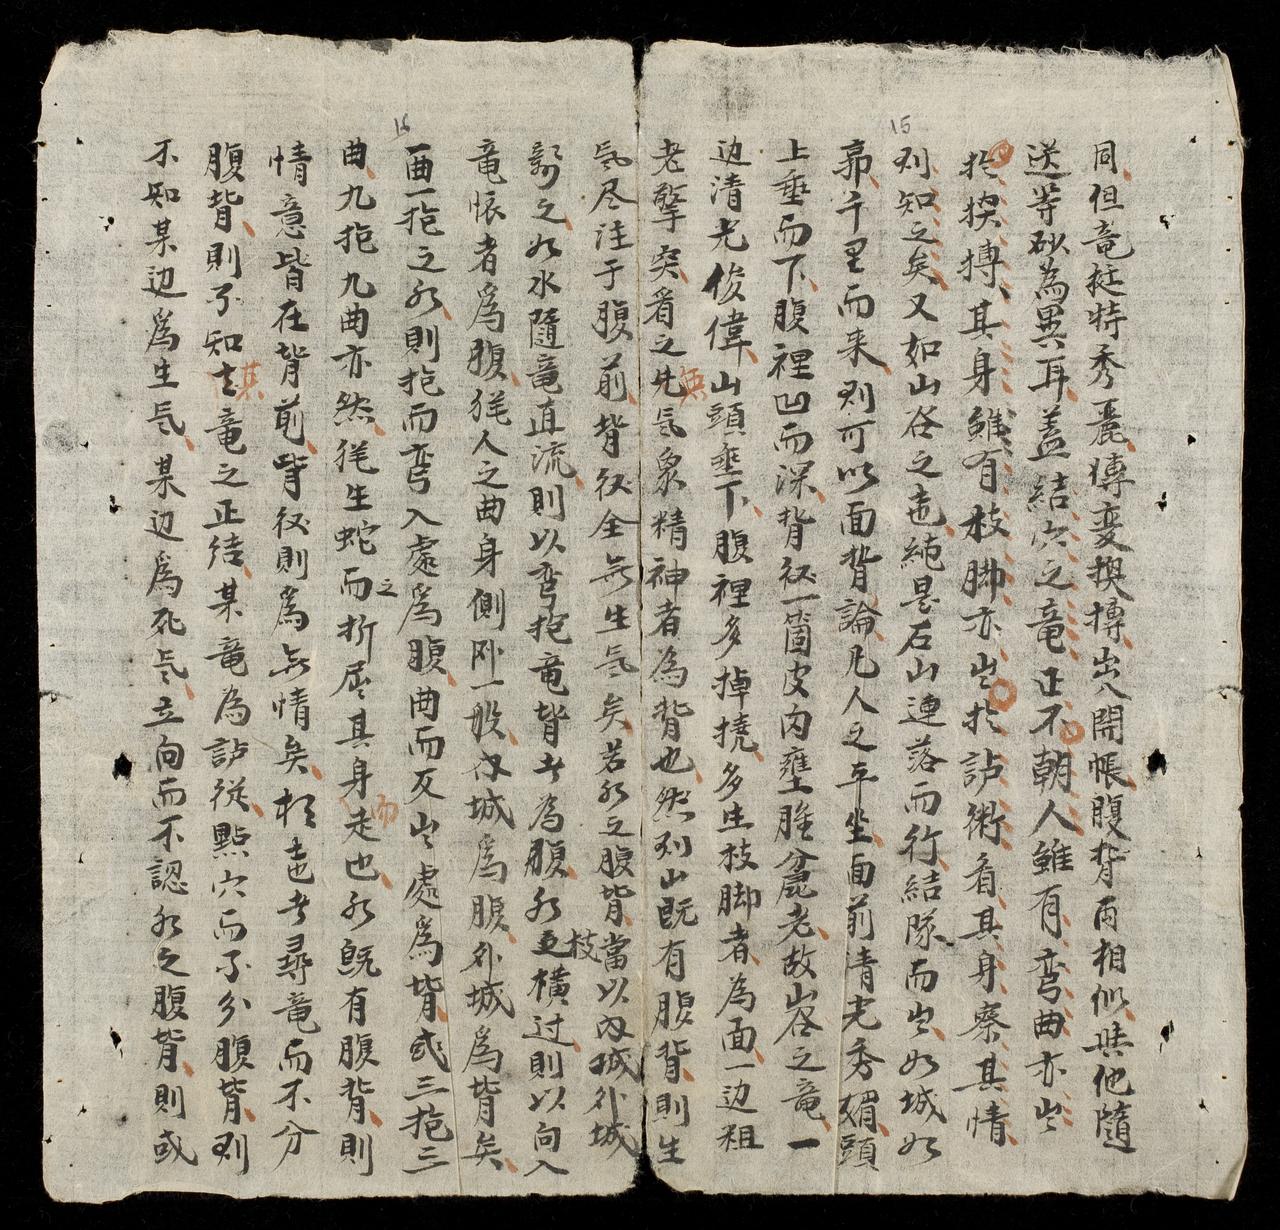 15
同但竜挺特秀麗傳变換摶出八開帳腹背两相似與他隨
送等砂為異耳盖結穴之竜正不朝人雖有弯曲亦出
於換摶其身雖有枝脚亦出於訪術看其身察其情
刈知之矣又如山谷之竜純是石山連落而行結隊而出如城如
郭千里而来刈可以面背論凡人之平坐面前清光秀媚頭
上垂而下腹裡凹而深背後一箇皮肉壅腫麁老故山谷之竜一
边清光俊偉山頭垂下腹裡多掉撓多生枝脚者為面一边粗
老擎突看之無气象精神者為背也然刈山既有腹背則生
气尽注于腹前背後全無生气矣若水之腹背當以内城外城
論之水隨竜直流則以弯抱竜背者為腹水枝橫过則以向入
竜懐者為腹㹣人之曲身側卧一般内城為腹外城為背矣
一曲一抱之水則抱而弯入處為腹曲而反出處為背或三抱三
曲九抱九曲亦然㹣生蛇之而折屈其身而走也水既有腹背則
情意皆在背前背後則為無情矣
者尋竜而不分
腹背則不知某竜之正結某竜為訪從點穴而不分腹背刈
不知某边為生气某边為死气立向而不認水之腹背則或
16